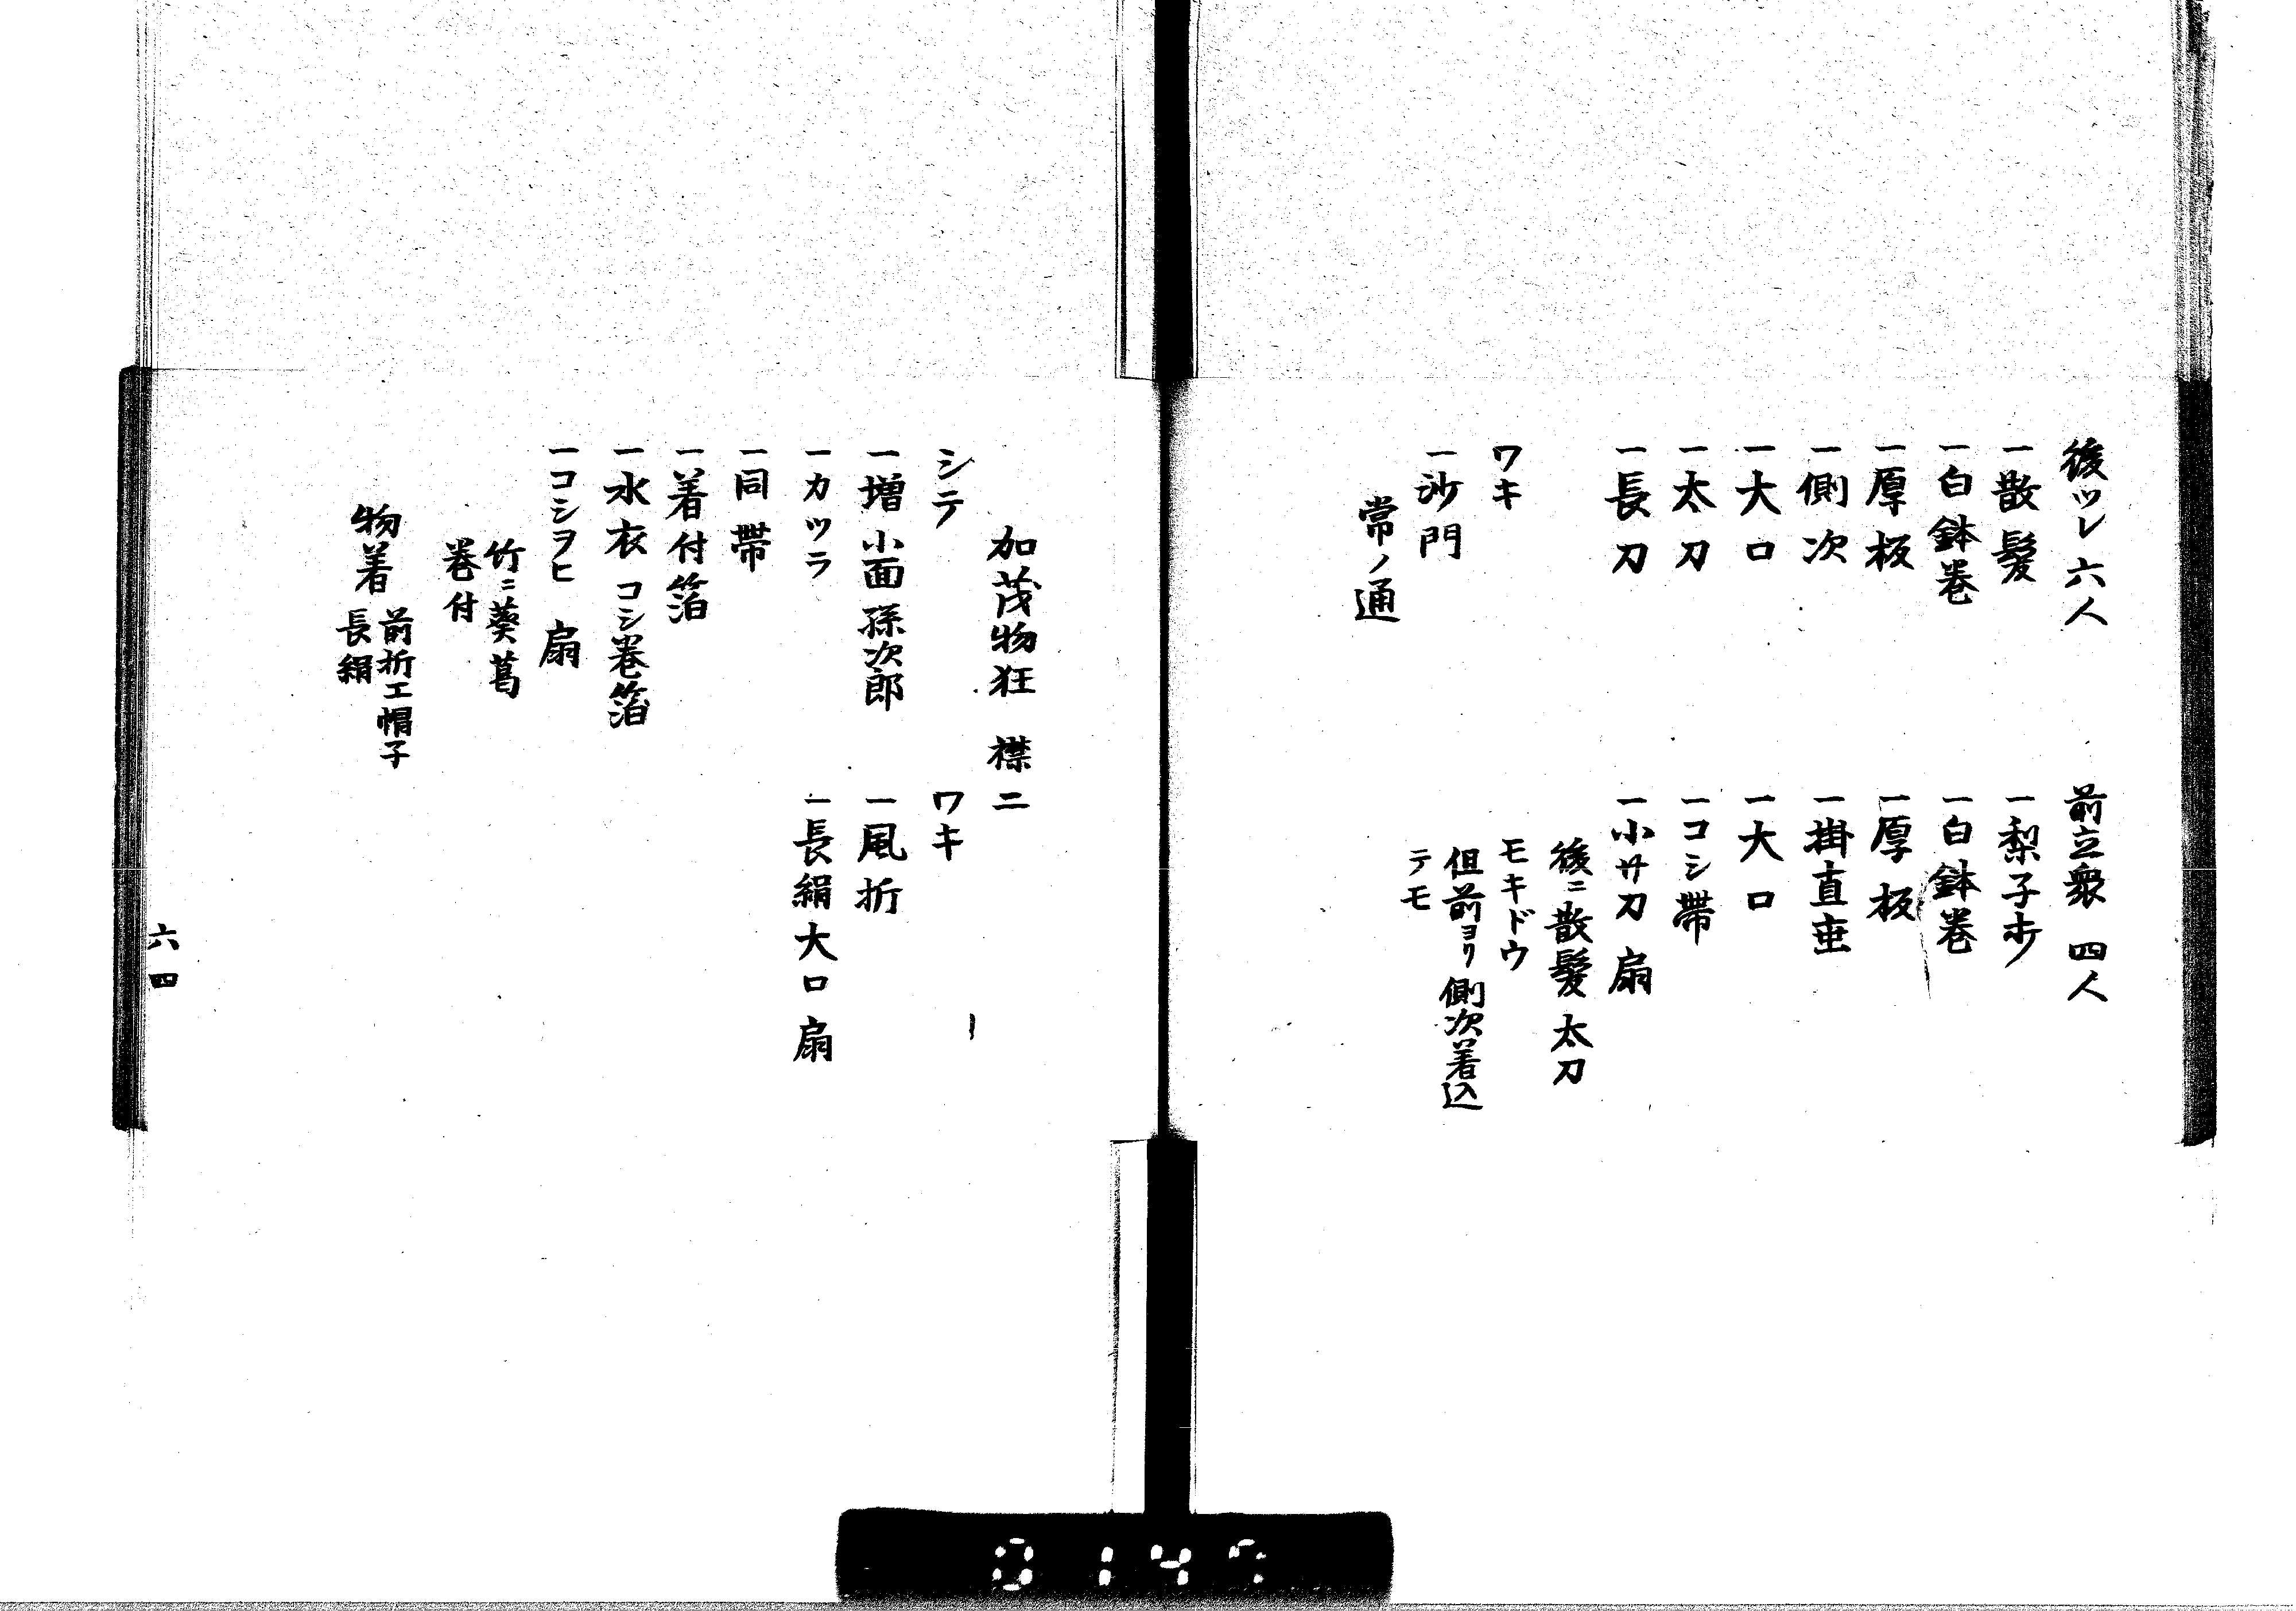 後ツレ六人
一散髪
一白鉢巻
一厚板
一側次
一大口
一太刀
一長刀
ワキ
一沙門
常ノ通
前立衆 四人
一梨子打
一白鉢巻
一厚板
一掛直垂
一大口
一コシ帯
一小サ刀 扇
後ニ散髪 太刀
モキドウ
但前ヨリ側次着込
テモ
加茂物狂 襟二
シテ
一増 小面 孫次郎
一カツラ
一同帯
一着付箔
一水衣 コシ巻箔
一コシヲヒ 扇
竹ニ葵葛
巻付
物着 前折エ帽子
長絹
ワキ
一風折
一長絹 大口 扇
六四
0147